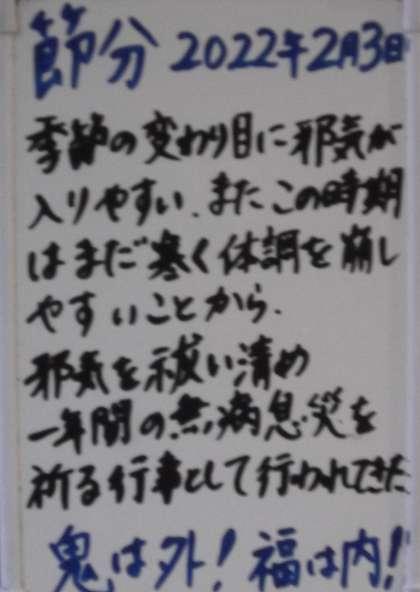 節分 2022年2月3日
季節の変わり目に邪気が
入りやすい、またこの時期
はまだ寒く体調を崩し
やすいことから、
邪気を祓い清め
一年間の無病息災を
祈る行事として行われてきた
鬼は外！福は内！